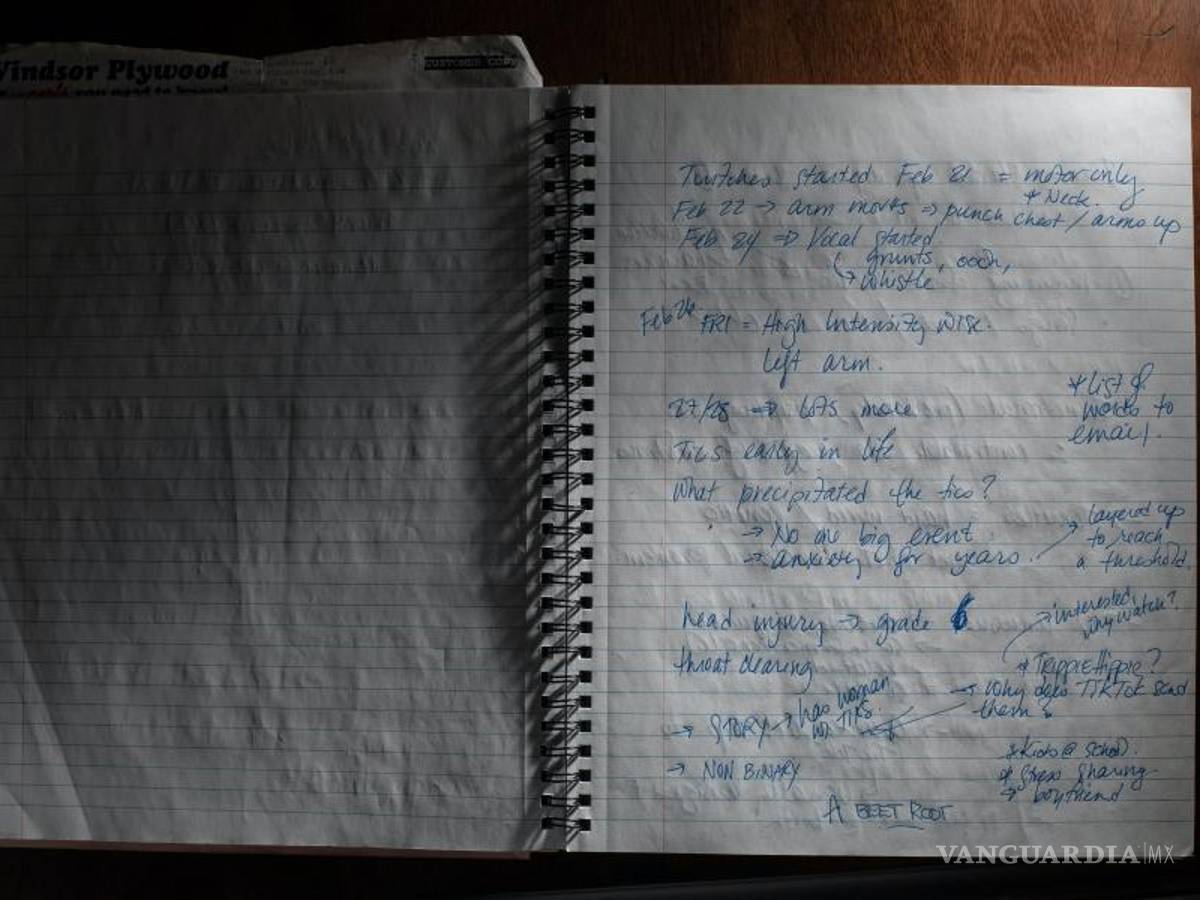 Windsor Plywood
CUSTOMER COPY
Twitches started Feb 21 = motor only
* Neck.
Feb 22 → arm movts ⇒ punch chest / arms up
Feb 24 ⇒ Vocal started
↳ grunts, oooh,
→ whistle
FRI = High Intensity wise.
left arm.
27/28 ⇒ lots more
* List of
words to
email.
Tics early in life
What precipitated the tics?
→ No one big event
→ anxiety for years.
→ layered up
to reach
a threshold
head injury → grade 6
→ interested,
why watch?
throat clearing
* TrippieHippie?
→ Why does TikTok send
them?
→ STORY → has woman
w. TIKS.
→ NON BINARY
* Kids @ school.
* Stress sharing
→ boyfriend
A BEET ROOT
VANGUARDIA|MX